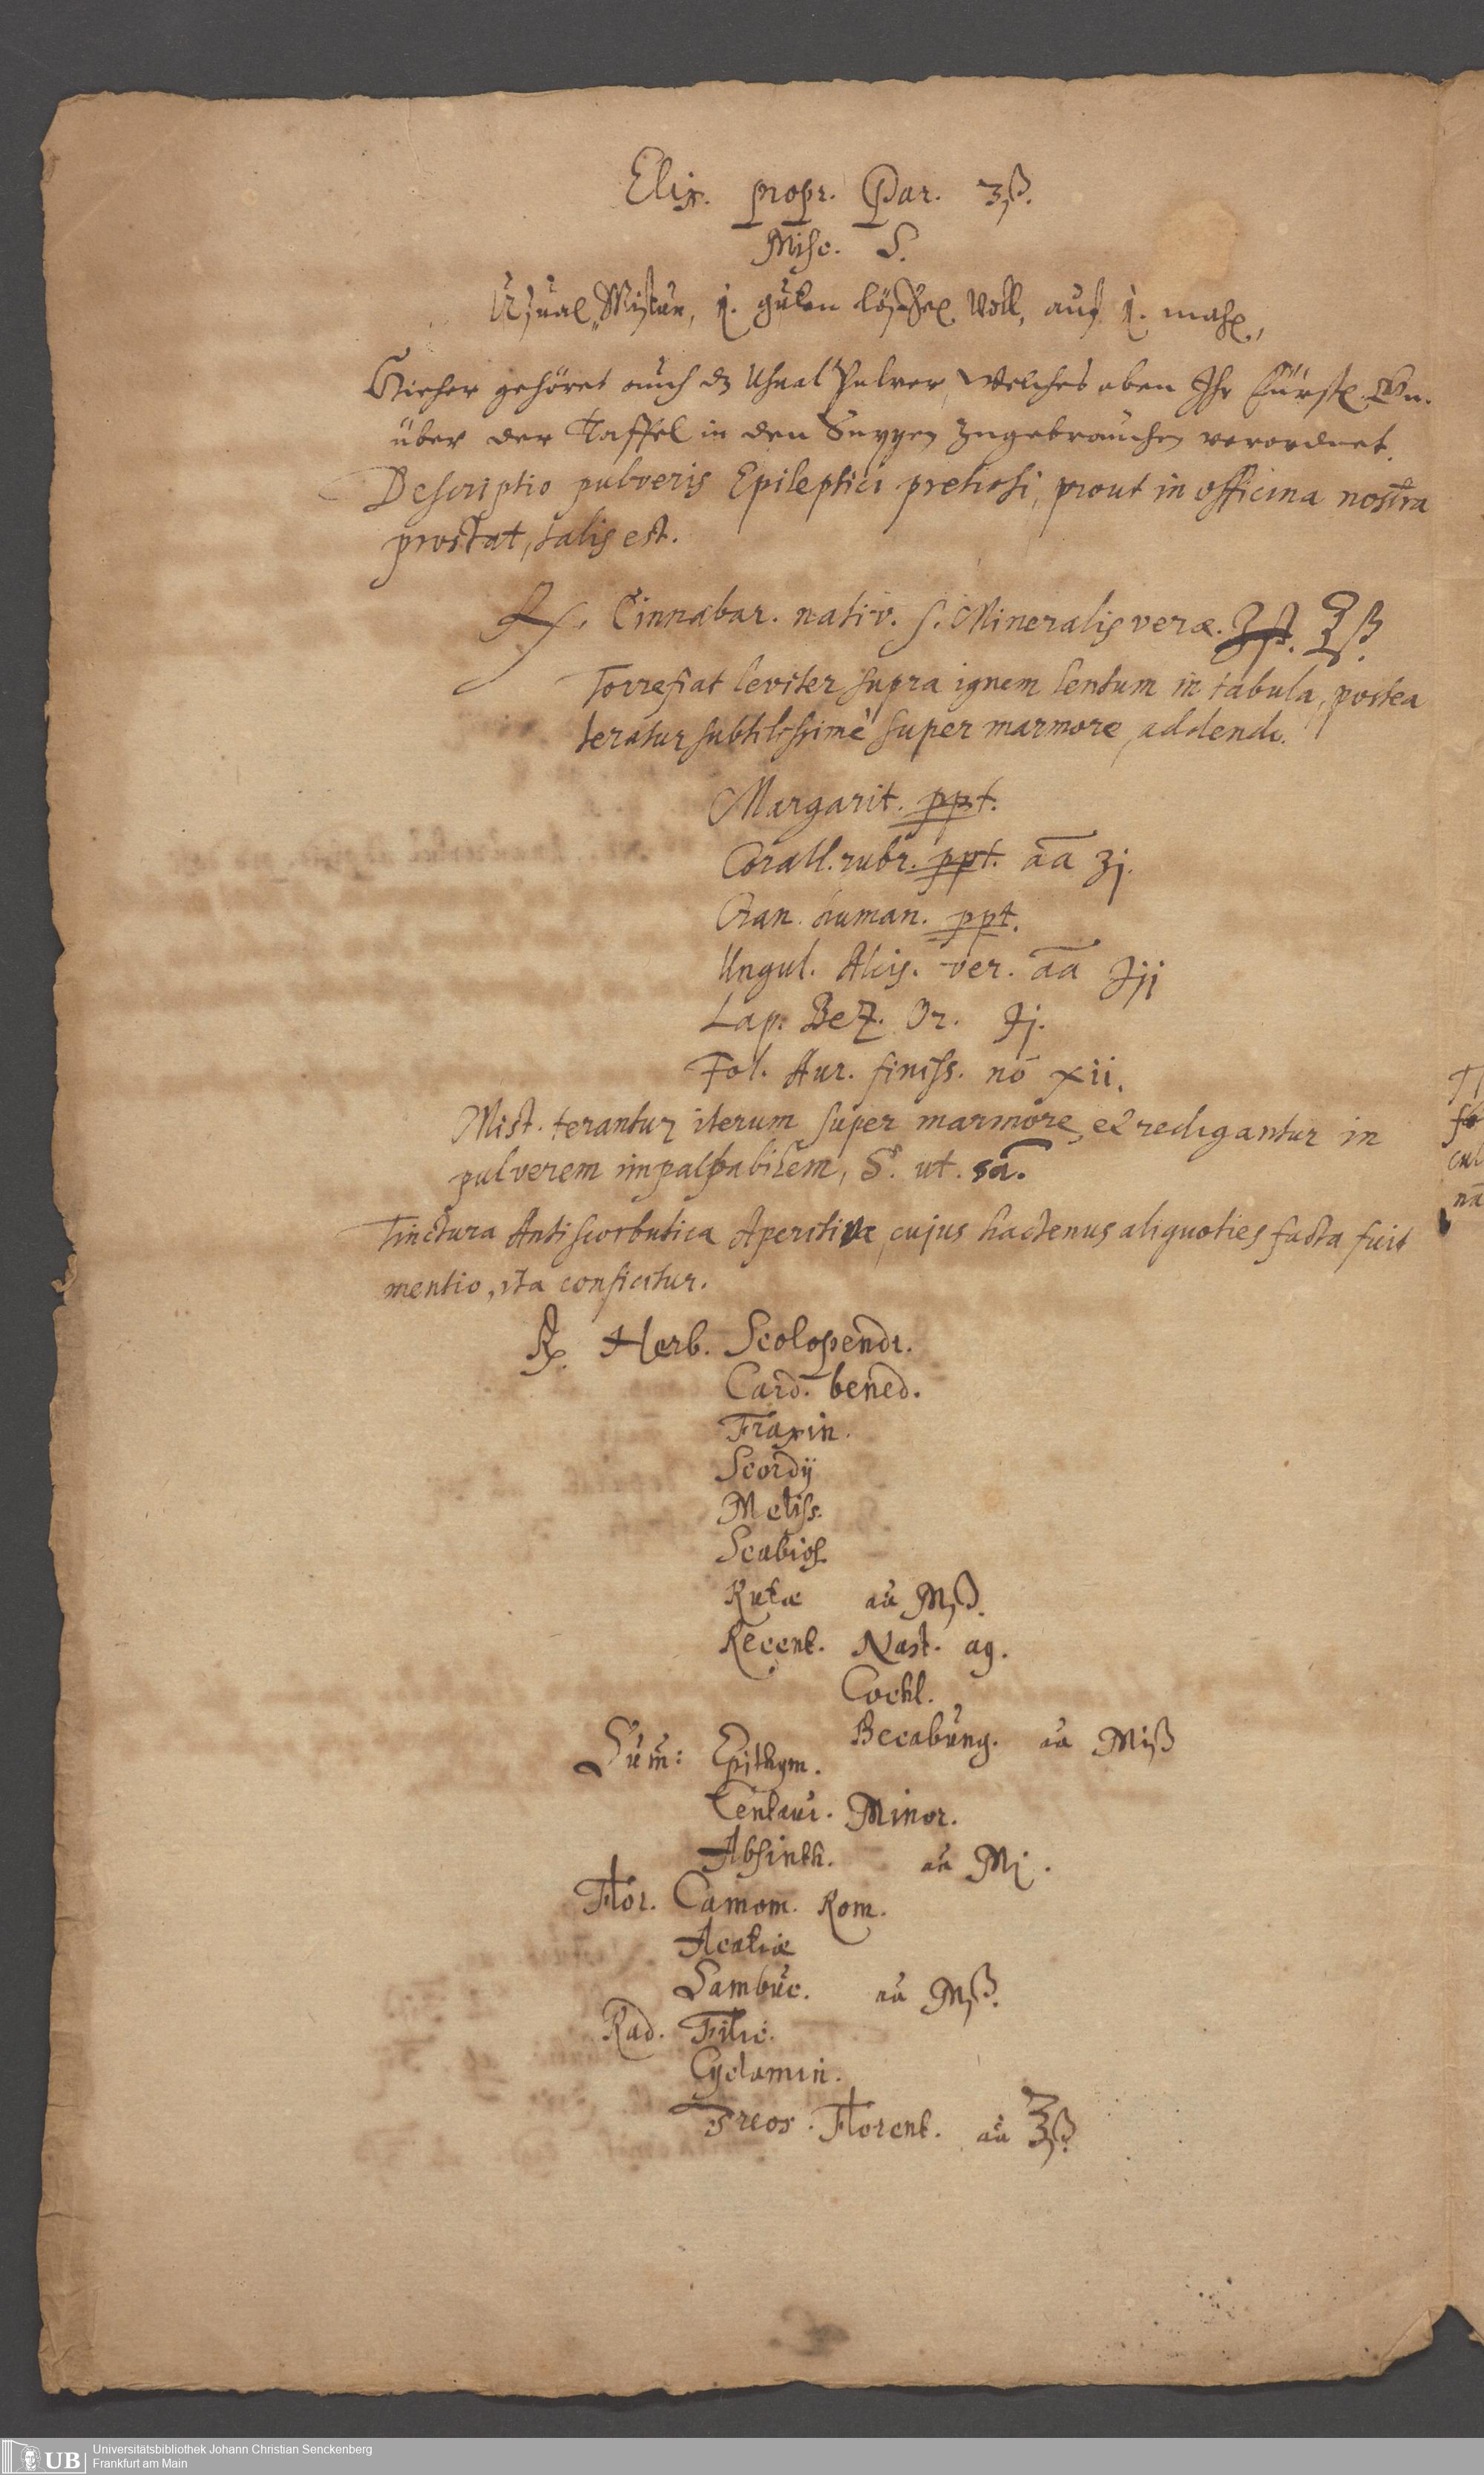 Elix. propr. Par. ʒß.
Misc. S.
Usual Mixtur, 1. guten löffel Voll, auf 1. mahl,
Hieher gehöret auch dz Usual Pulver, welches oben Ihr Fürstl. Gn.
über der Taffel in den Suppen zugebrauchen verordnet.
Descriptio pulveris Epileptici pretiosi, prout in officina nostra
prostat, talis est.
℞. Cinnabar. nativ. s. Mineralis veræ. ℥ß.
Torrefiat leviter supra ignem lentum in tabula, postea
teratur subtilissimè super marmore, addendo.
Margarit. ppt.
Corall. rubr. ppt. āā ʒj.
Cran. human. ppt.
Ungul. Alcis. ver. āā ℈ij
Lap. Bez. Or. ℈j.
Fol. Aur. finiss. nō xii.
Mist. terantur iterum super marmore, et redigantur in
pulverem impalpabilem, S. ut. sā.
Tinctura Antiscorbutica Aperitiva, cujus hactenus aliquoties facta fuit
mentio, ita conficitur.
℞. Herb. Scolopendr.
Card. bened.
Fraxin.
Scordij
Meliss.
Scabios.
Rutæ aā Mß.
Recent. Nast. aq.
Cochl.
Becabung. aā Miß
Sum̄: Epithym.
Centaur. Minor.
Absinth. aā Mj.
Flor. Camom. Rom.
Acatiæ
Sambuc. aā Mß.
Rad. Filic.
Cyclamin.
Ireos. Florent. aā ℥ß.
UB
Universitätsbibliothek Johann Christian Senckenberg
Frankfurt am Main